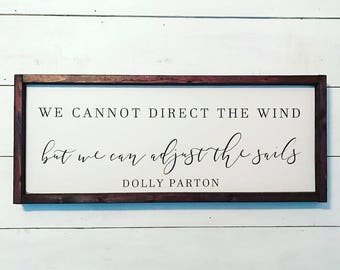 WE CANNOT DIRECT THE WIND
but we can adjust the sails
DOLLY PARTON